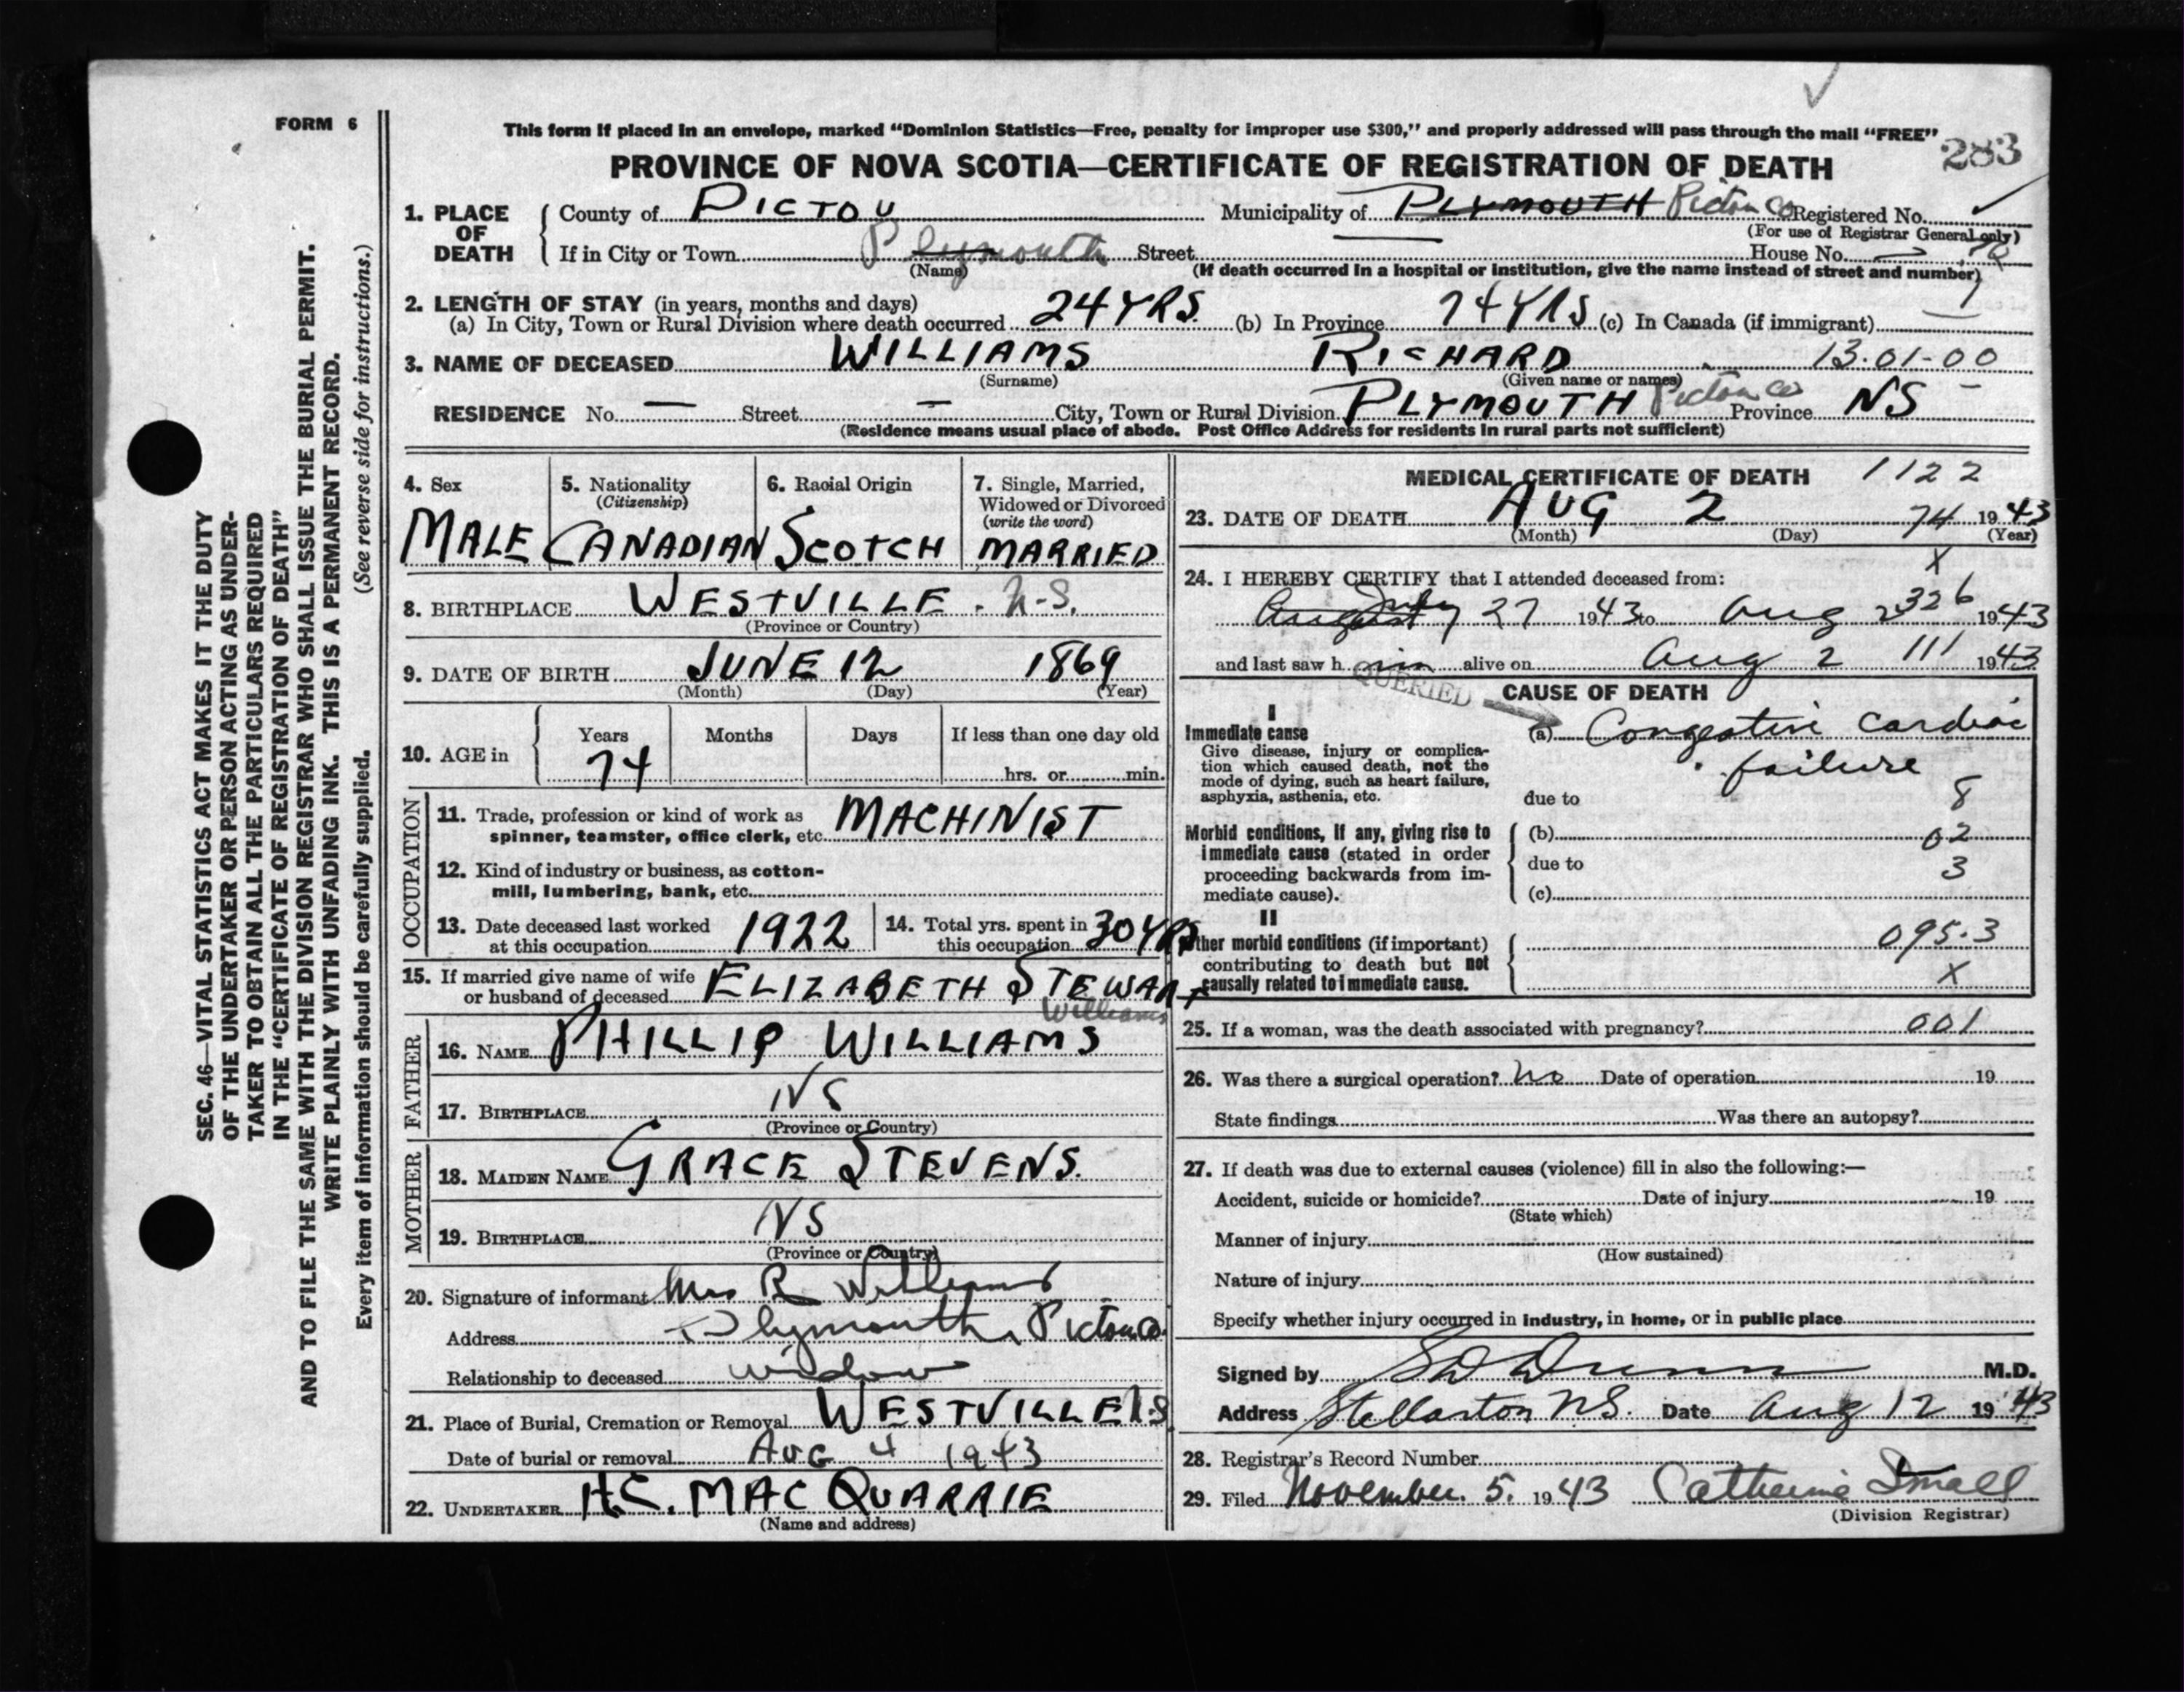 FORM 6
283
This form if placed in an envelope, marked “Dominion Statistics—Free, penalty for improper use $300,” and properly addressed will pass through the mail “FREE”
PROVINCE OF NOVA SCOTIA—CERTIFICATE OF REGISTRATION OF DEATH
1. PLACE OF DEATH
County of PICTOU Municipality of PLYMOUTH Pictou Co Registered No.
(For use of Registrar General only)
If in City or Town Plymouth Street House No.
(Name)
(If death occurred in a hospital or institution, give the name instead of street and number)
2. LENGTH OF STAY (in years, months and days)
(a) In City, Town or Rural Division where death occurred 24 YRS. (b) In Province 74 YRS (c) In Canada (if immigrant)
3. NAME OF DECEASED WILLIAMS RICHARD 13.01-00
(Surname) (Given name or names)
RESIDENCE No. — Street — City, Town or Rural Division PLYMOUTH Pictou Co Province NS
(Residence means usual place of abode. Post Office Address for residents in rural parts not sufficient)
4. Sex
MALE
5. Nationality
(Citizenship)
CANADIAN
6. Racial Origin
SCOTCH
7. Single, Married,
Widowed or Divorced
(write the word)
MARRIED
8. BIRTHPLACE WESTVILLE. N.S.
(Province or Country)
9. DATE OF BIRTH JUNE 12 1869
(Month) (Day) (Year)
10. AGE in
Years Months Days If less than one day old
74 hrs. or min.
OCCUPATION
11. Trade, profession or kind of work as
spinner, teamster, office clerk, etc. MACHINIST
12. Kind of industry or business, as cotton-
mill, lumbering, bank, etc.
13. Date deceased last worked
at this occupation 1922
14. Total yrs. spent in
this occupation 30 YRS
15. If married give name of wife
or husband of deceased ELIZABETH STEWART
Williams
FATHER
16. NAME PHILLIP WILLIAMS
17. BIRTHPLACE NS
(Province or Country)
MOTHER
18. MAIDEN NAME GRACE STEVENS.
19. BIRTHPLACE NS
(Province or Country)
20. Signature of informant Mrs R Williams
Address Plymouth, Pictou Co.
Relationship to deceased widow
21. Place of Burial, Cremation or Removal WESTVILLE N.S
Date of burial or removal AUG 4 1943
22. UNDERTAKER H.C. MAC QUARRIE
(Name and address)
MEDICAL CERTIFICATE OF DEATH 1122
23. DATE OF DEATH AUG 2 74 1943
(Month) (Day) (Year)
X
24. I HEREBY CERTIFY that I attended deceased from:
August July 27 1943 to Aug 2 326 1943
and last saw him alive on Aug 2 111 1943
QUERIED
CAUSE OF DEATH
I
Immediate cause
Give disease, injury or complica-
tion which caused death, not the
mode of dying, such as heart failure,
asphyxia, asthenia, etc.
(a) Congestive cardiac
failure
due to 8
Morbid conditions, if any, giving rise to
immediate cause (stated in order
proceeding backwards from im-
mediate cause).
(b) 02
due to 3
(c)
II
Other morbid conditions (if important)
contributing to death but not
causally related to immediate cause.
095.3
X
25. If a woman, was the death associated with pregnancy? 001
26. Was there a surgical operation? no Date of operation 19
State findings Was there an autopsy?
27. If death was due to external causes (violence) fill in also the following:—
Accident, suicide or homicide? Date of injury 19
(State which)
Manner of injury
(How sustained)
Nature of injury
Specify whether injury occurred in industry, in home, or in public place
Signed by S D Dunn M.D.
Address Stellarton N.S. Date Aug 12 1943
28. Registrar’s Record Number
29. Filed November 5. 1943 Catherine Small
(Division Registrar)
SEC. 46—VITAL STATISTICS ACT MAKES IT THE DUTY
OF THE UNDERTAKER OR PERSON ACTING AS UNDER-
TAKER TO OBTAIN ALL THE PARTICULARS REQUIRED
IN THE “CERTIFICATE OF REGISTRATION OF DEATH”
AND TO FILE THE SAME WITH THE DIVISION REGISTRAR WHO SHALL ISSUE THE BURIAL PERMIT.
WRITE PLAINLY WITH UNFADING INK. THIS IS A PERMANENT RECORD.
Every item of information should be carefully supplied. (See reverse side for instructions.)